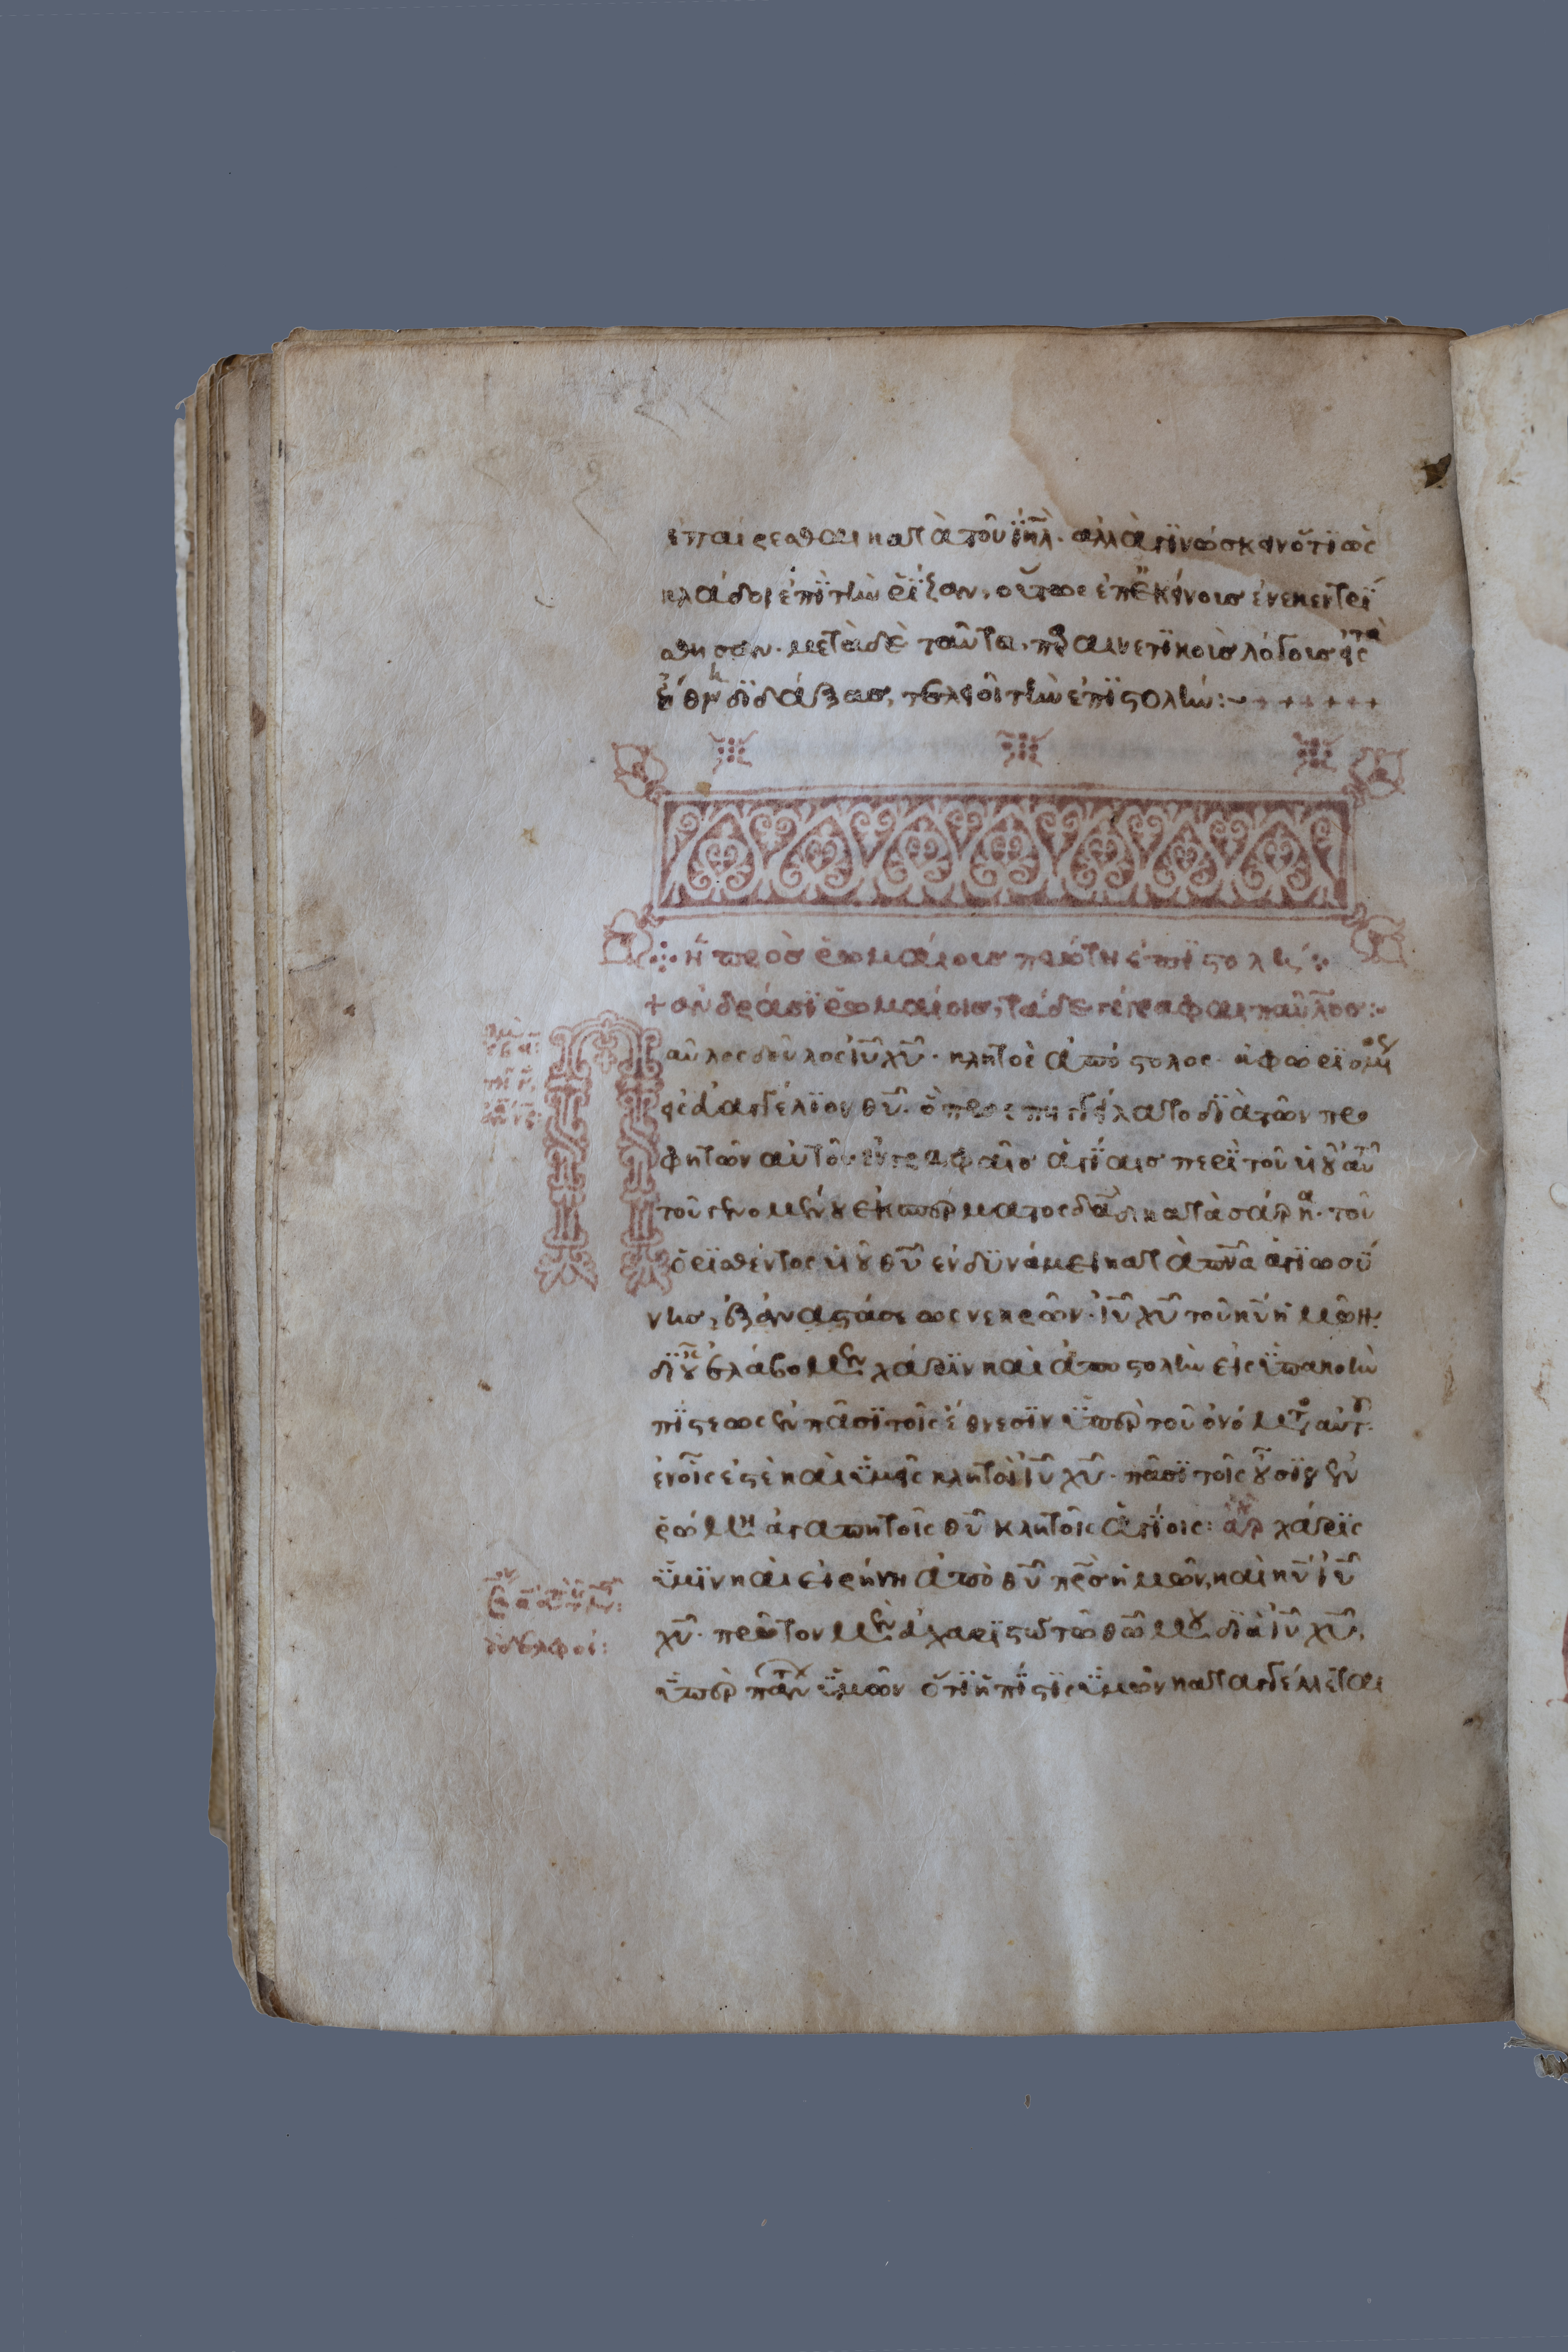 ἐπαίρεσθαι κατὰ τοῦ ἰη̅λ· ἀλλὰ γϊνώσκειν ὅτϊ ὡς
κλάδοι ἐπὶ τὴν ῥίζαν, οὕτως ἐπ ἐκείνοις ἐνεκεντρί
σθησαν· μετὰ δὲ ταῦτα, παραινετϊκοῖς λόγοις εἰς τὰ
ἤθη διδάξας, τελειοῖ τὴν ἐπϊστολήν:
ἡ πρὸς ῥωμαίοις πρώτη ἐπϊστολή
+ ἀνδράσϊ ῥωμαίοισι, τάδε γέγραφαι παῦλος:
Παῦλος δοῦλος ιυ̅ χυ̅· κλητὸς ἀπόστολος· ἀφωρϊσμένος
εἰς εὐαγγέλϊον θυ̅· ὃ προεπηγγείλατο δϊὰ τῶν προ
φητῶν αὐτοῦ ἐν γραφαῖς ἁγΐαις περὶ τοῦ υἱοῦ αὐτοῦ
τοῦ γενομένου ἐκ σπέρματος δα̅δ κατὰ σάρκα· τοῦ
ὁρϊσθέντος υἱοῦ θυ̅ ἐν δϋνάμει κατὰ πνα̅ ἁγϊωσύ
νης, ἐξ ἀναστάσεως νεκρῶν· ιυ̅ χυ̅ τοῦ κυ̅ ἡμῶν·
δϊ οὗ ἐλάβομεν χάρϊν καὶ ἀποστολὴν εἰς ϋπακοὴν
πΐστεως ἐν πᾶσϊ τοῖς ἔθνεσϊν ϋπὲρ τοῦ ὀνόματος αὐτοῦ·
ἐν οἷς ἐστὲ καὶ ϋμεῖς κλητοὶ ιυ̅ χυ̅· πᾶσϊ τοῖς οὖσϊν ἐν
ῥώμη ἀγαπητοῖς θυ̅ κλητοῖς ἁγΐοις: ἀρ χάρϊς
ϋμῖν καὶ εἰρήνη ἀπὸ θυ̅ πρς̅ ἡμῶν, καὶ κυ̅ ιυ̅
χυ̅· πρῶτον μὲν εὐχαρϊστῶ τῷ θω̅ μου δϊὰ ιυ̅ χυ̅,
ϋπὲρ πάντων ϋμῶν ὅτϊ ἡ πΐστϊς ϋμῶν καταγγέλλεται
ἀδελφοί: